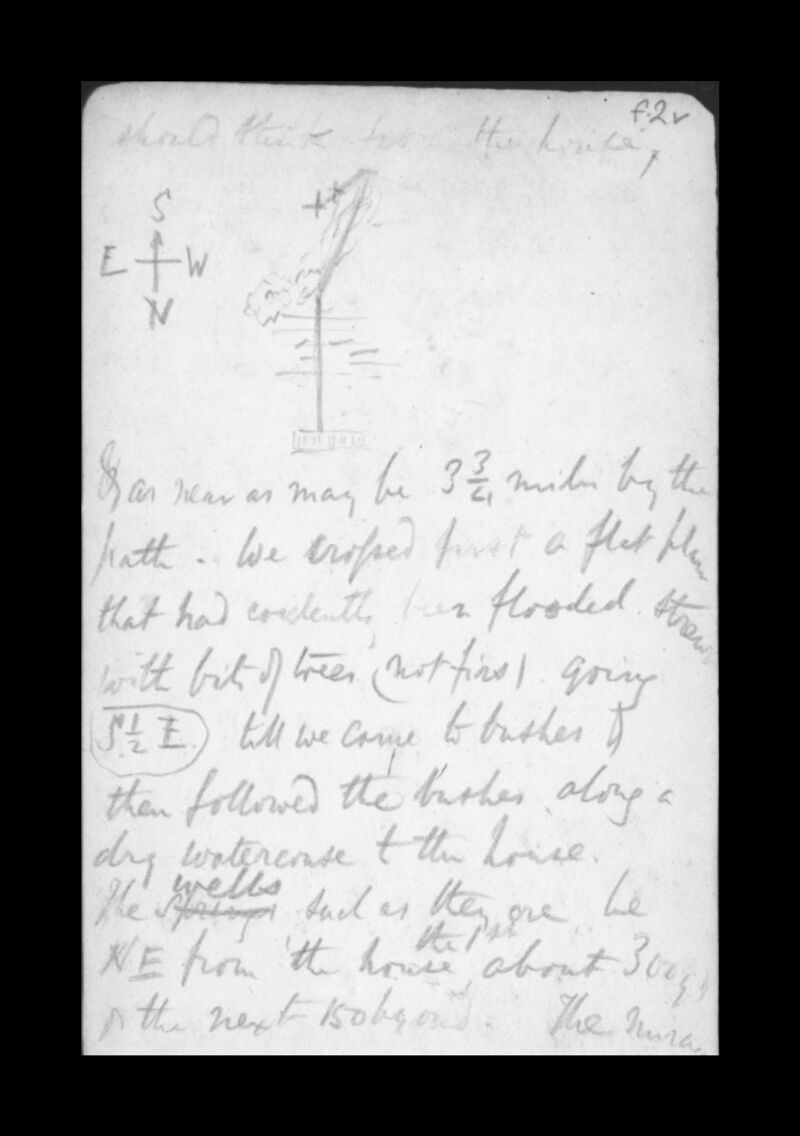 f.2v
should think from the house,
S
E W
N
& as near as may be 3 3/4 miles by the
path. We crossed first a flat plain
that had evidently been flooded strewn
with bits of trees (not firs) going
S 1/2 E till we came to bushes &
then followed the bushes along a
dry watercourse to the house.
wells
The springs such as they are lie
the 1st
NE from the house about 300 yds
& the next 150 beyond. The